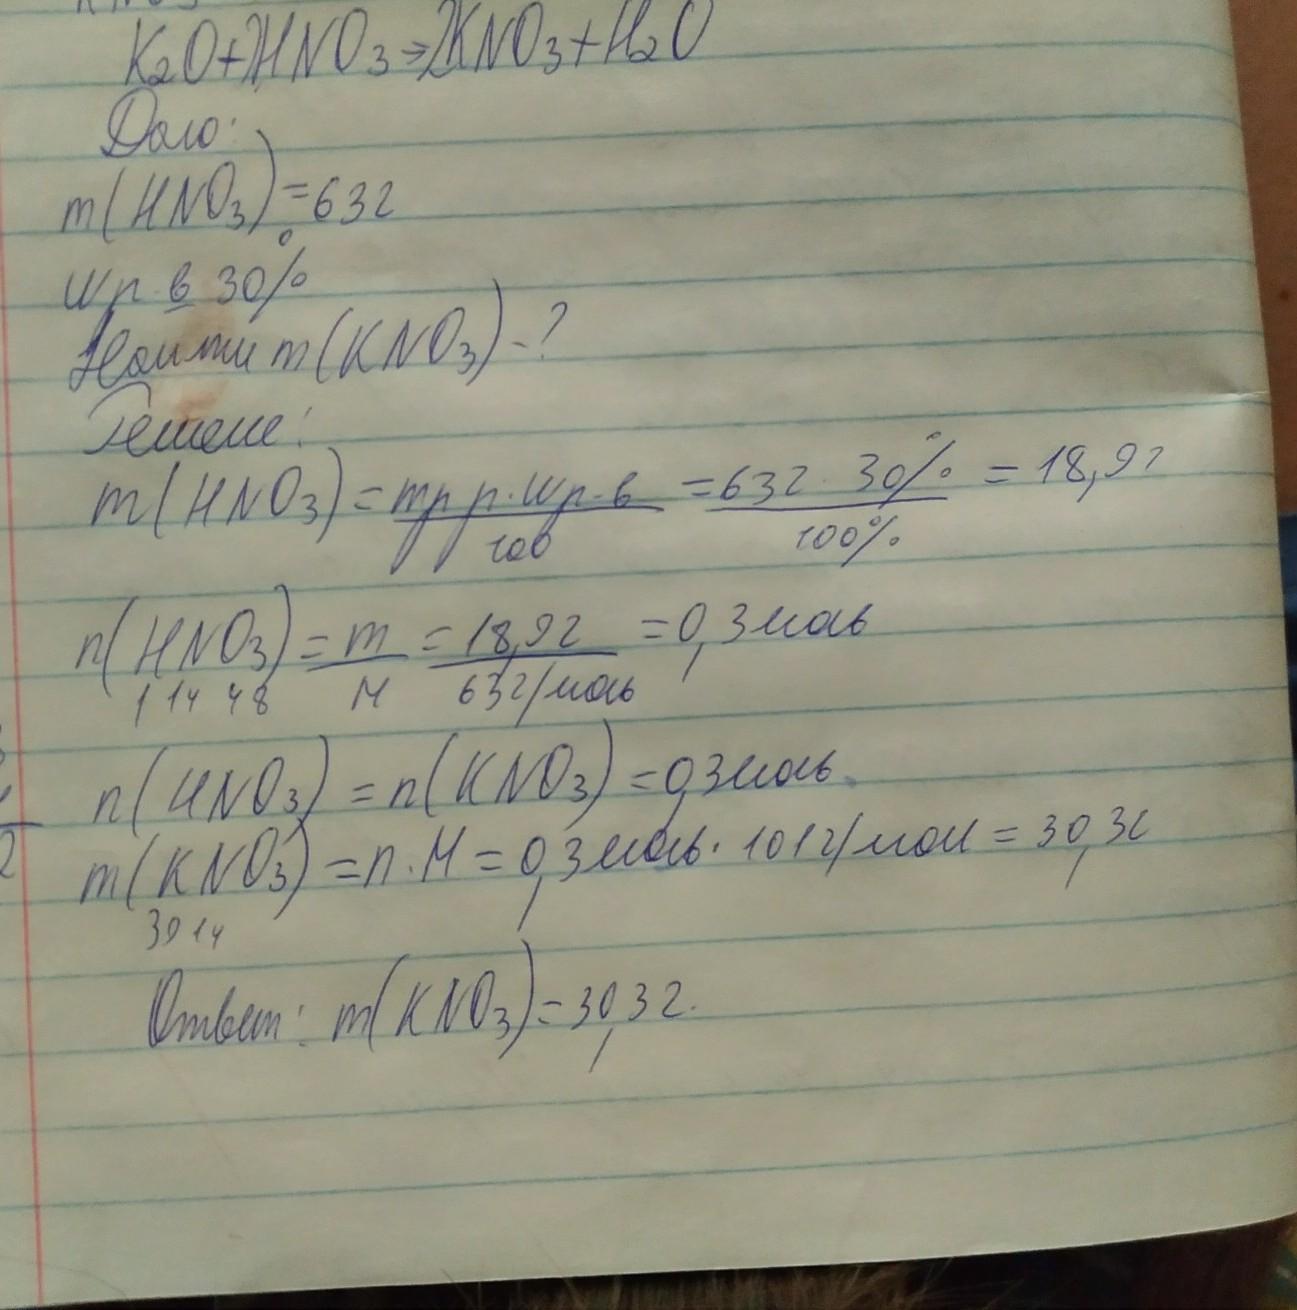 K₂O+2HNO₃→2KNO₃+H₂O
Дано:
m(HNO₃)=63г
Wр.в 30%
Найти m(KNO₃)-?
Решение:
m(HNO₃)=mр р·Wр.в/100=63г·30%/100%=18,9г
n(HNO₃)=m/M=18,9г/63г/моль=0,3моль
1 14 48
n(HNO₃)=n(KNO₃)=0,3моль.
m(KNO₃)=n·M=0,3моль·101г/мол=30,3г
39 14
Ответ: m(KNO₃)=30,3г.